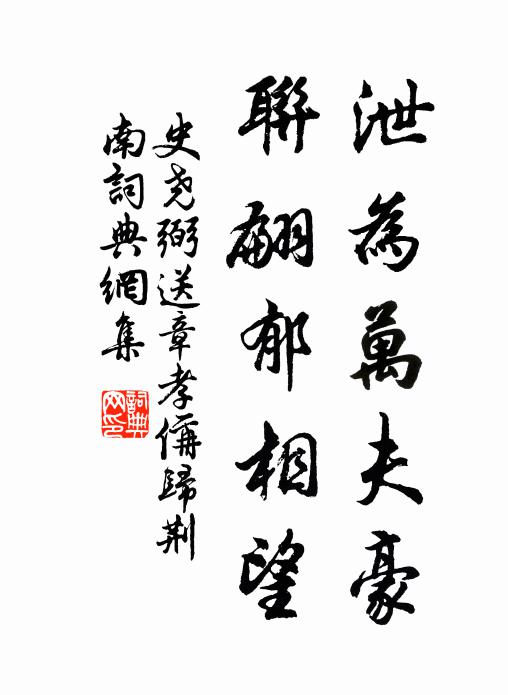 泄為萬夫豪
聯翩郁相望
史堯弼送章孝儔歸荆
南詞典網集
詞典网印